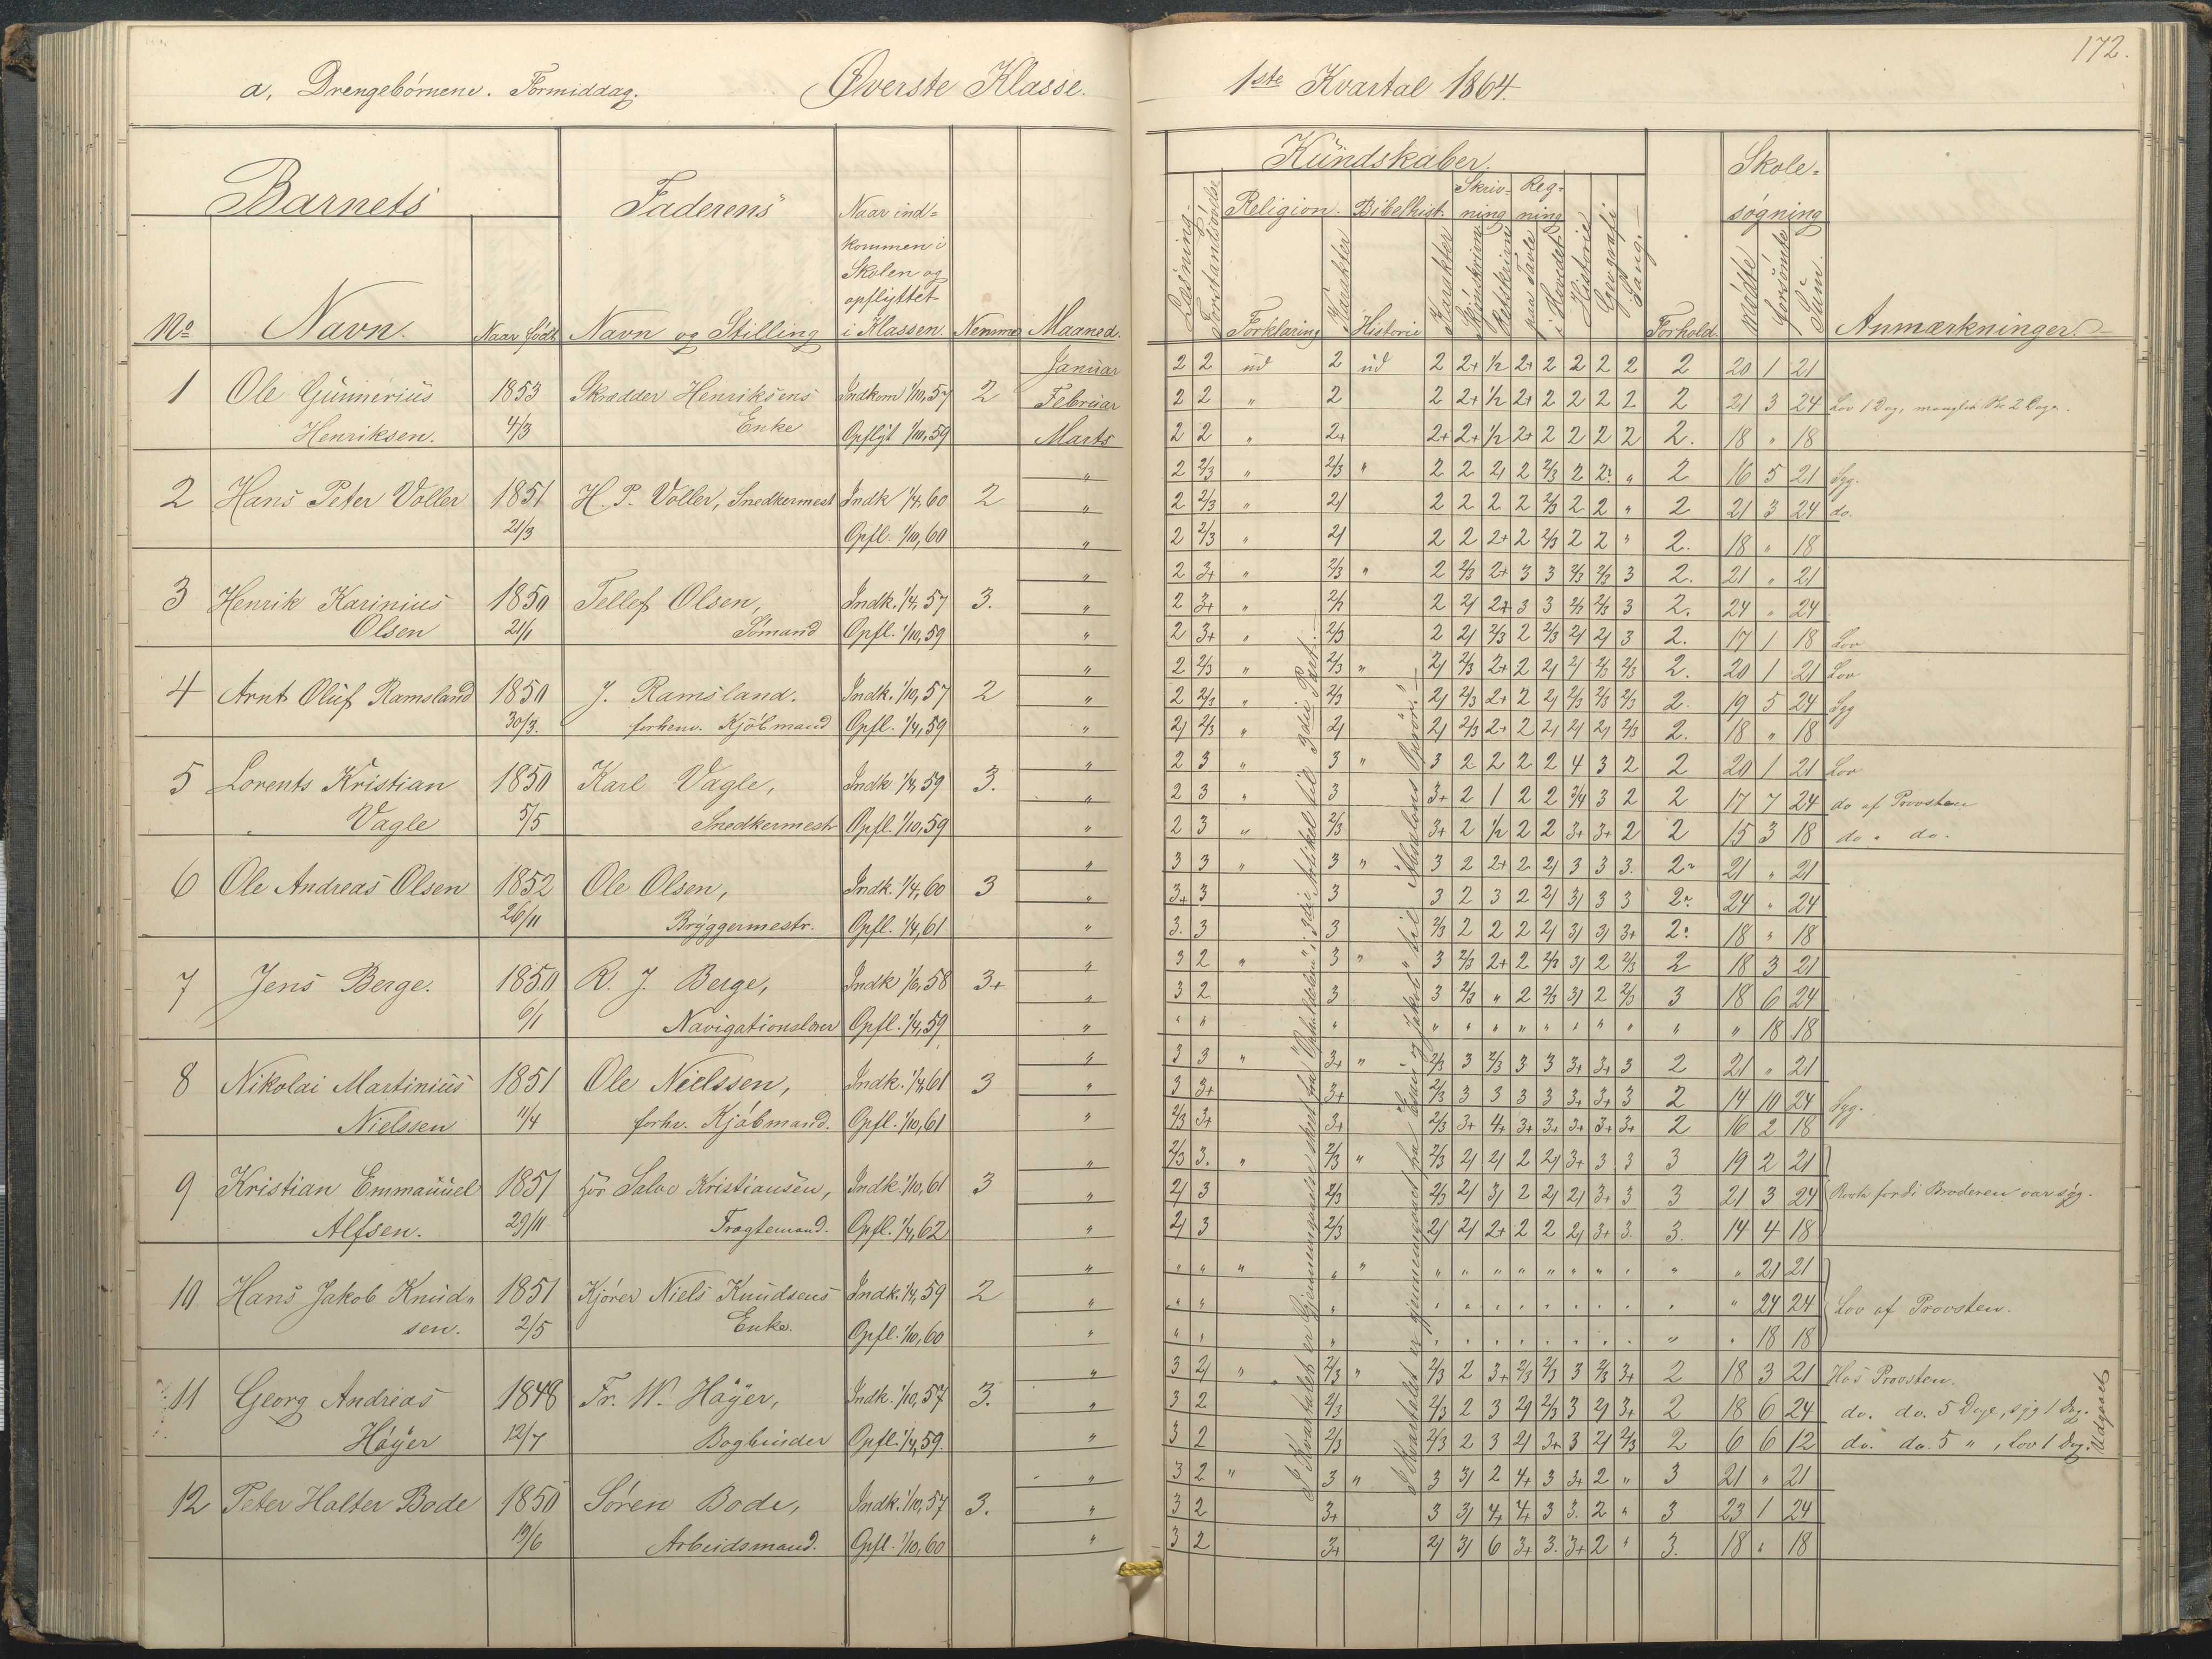 172.
a, Drengebørnene. Formiddag. Øverste Klasse. 1ste Kvartal 1864.
Barnets Faderens Naar ind= Kündskaber. Skole=
kommen i Religion. Bibelhist. Skriv= Reg= søgning
Skolen og ning ning
opflyttet
No Navn. Naar født Navn og Stilling i Klassen. Nemme Maaned. Læsning Forstandsøvelse Forklaring Karakter Historie Karakter Skjönskrivn Retskrivn paa Tavle i Hovedet Historie Geografi Sang. Forhold. mødte forsömte Süm. Anmærkninger.
Januar 2 2 ud 2 ud 2 2+ ½ 2+ 2 2 2 2 2 20 1 21
1 Ole Günnerius 1853 Skrædder Henriksens Indkom 1/10,57 2 Februar 2 2 " 2 2 2+ ½ 2+ 2 2 2 2 2 21 3 24 Lov 1 Dag,
Henriksen. 4/3 Enke Opflyt 1/10,59 Marts 2 2 " 2+ 2+ 2+ ½ 2+ 2 2 2 2 2. 18 " 18
" 2 2/3 " 2/3 " 2 2 2/ 2 2/3 2 2. " 2 16 5 21 Syg.
2 Hans Peter Voller 1851 H. P. Voller, Snedkermest Indk 1/4,60 2 " 2 2/3 " 2/ 2 2 2 2 2/3 2 2 " 2 21 3 24 do.
21/3 Opfl. 1/10,60 " 2 2/3 " 2/ 2 2 2+ 2 2/3 2 2 " 2. 18 " 18
" 2 3+ " 2/3 " 2 2/3 2+ 3 3 2/3 2/3 3 2. 21 " 21
3 Henrik Karinius 1850 Tellef Olsen, Indk. 1/4,57 3. " 2 3+ " 2/3 2 2/ 2+ 3 3 2/3 2/3 3 2. 24 " 24
Olsen 21/1 Sømand Opfl. 1/10,59 " 2 3+ " 2/3 2 2/ 2/3 2 2/3 2/ 2/ 3 2. 17 1 18 Lov
" 2 2/3 " 2/3 " 2/ 2/3 2+ 2 2/ 2/ 2/3 2/3 2. 20 1 21 Lov
4 Arnt Olüf Ramsland 1850 J. Ramsland. Indk. 1/10,57 2 " 2 2/3 " 2/3 2/ 2/3 2+ 2 2/ 2/3 2/3 2/3 2. 19 5 24 Syg
30/3. forhenv. Kjöbmand Opfl. 1/4,59 " 2/ 2/3 " 2/ 2/ 2/3 2+ 2 2/ 2/ 2/ 2/3 2. 18 " 18
" 2 3 " 3 " 3 2 2 2 2 4 3 2 2 20 1 21 Lov
5 Lorents Kristian 1850 Karl Vagle, Indk 1/4,59 3. " 2 3 " 3 3+ 2 1 2 2 3/4 3 2 2 17 7 24 do af Provsten
Vagle 5/5 Snedkermestr Opfl. 1/10,59 " 2 3 " 2/3 3+ 2 ½ 2 2 3+ 3+ 2 2 15 3 18 do " do.
" 3 3 " 3 " 3 2 2+ 2 2/ 3 3 3. 2 21 " 21
6 Ole Andreas Olsen 1852 Ole Olsen, Indk. 1/4,60 3 " 3+ 3 3 3 2 3 2 2/ 3/ 3 3 2. 24 " 24
26/11 Brÿggermestr. Opfl. 1/4,61 " 3. 3 3 2/3 2 2 2 2/ 3/ 3/ 3+ 2. 18 " 18
" 3 2 " 3 " 3 2/3 2+ 2 2/3 3/ 2 2/3 2 18 3 21
7 Jens Berge. 1850 R. J. Berge, Indk 1/6,58 3+ " 3 2 3 3 2/3 " 2 2/3 3/ 2 2/3 3 18 6 24
6/1 Navigationslærer Opfl. 1/4,59 " " " " " " " " " " " " " " 18 18
" 3 3 " 3+ " 2/3 3 2/3 3 3 3+ 3+ 3 2 21 " 21
8 Nikolai Martinius 1851 Ole Nielssen, Indk. 1/4,61 3 " 3 3+ 3+ 2/3 3 3 3 3 3+ 3+ 3 2 14 10 24 Syg.
Nielssen 11/4 forhv. Kjøbmand. Opfl. 1/10,61 " 2/3 3+ 3+ 2/3 3+ 4+ 3+ 3+ 3+ 3+ 3+ 2 16 2 18
" 2/3 3. " 2/3 " 2/3 2/ 2/ 2 2/ 3+ 3 3 3 19 2 21
9 Kristian Emmaüuel 1851 hör Salve Kristiansen, Indk 1/10,61 3 " 2/ 3 2/3 2/3 2/ 3/ 2 2/ 2/ 3+ 3 3 21 3 24 fordi Broderen var syg.
Alfsen. 29/11 Fragtemand. Opfl. 1/4,62 " 2/ 3 2/3 2/ 2/ 2+ 2 2 2/ 3+ 3. 3. 14 4 18
" " " " " " " " " " " " " " " " " 21 21
10 Hans Jakob Knüd= 1851 Kjører Niels Knudsens Indk. 1/4,59 2 " " " " " " " " " " " " " " " 24 24 Lov af Provsten.
sen. 2/5 Enke. Opfl. 1/10,60 " " " " " " " " " " " " " " 18 18
" 3 2/ " 2/3 " 2/3 2 3+ 2/3 2/3 3 2/3 3+ 2 18 3 21 Hos Provsten.
11 Georg Andreas 1848 Fr. W. Høÿer, Indk. 1/10,57 3. " 3 2 2/3 2/3 2 3 2/ 2/3 3 2/ 3+ 2 18 6 24 do. do. 5 Dage, syg 1 Dag.
Høÿer 12/7 Bogbinder Opfl. 1/4,59. " 3 2 2/3 2/3 2 3 2/ 3+ 3 2/ 2/3 2 6 6 12 do. do. 5 " , Lov 1 Dag.
Udgaaet
" 3 2 " 3 " 3 3/ 2 4+ 3 3+ 2 " 3 21 " 21
12 Peter Halter Bode 1850 Søren Bode, Indk. 1/10,57 3. " 3 2 3+ 3 3/ 4+ 4+ 3 3. 2 " 3 23 1 24
19/6 Arbeidsmand. Opfl. 1/10,60 " 3 2 3+ 2/ 3/ 6 3+ 3. 3+ 2 " 3. 18 " 18
I Kvartalet er Gjennemgaaelse skeet fra "Opholdelsen" i 3die Artikel til 3die Part.
I Kvartalet er gjennemgaaet fra Esau og Jakob til